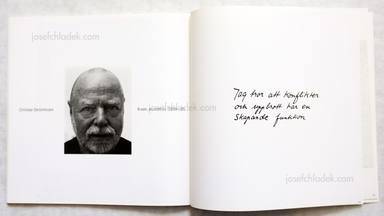 josefchladek.com
josefchladek.com
Christer Strömholm
Jag tror att konflikter
och uppbrott har en
skapande funktion
josefchladek.com
josefchladek.com